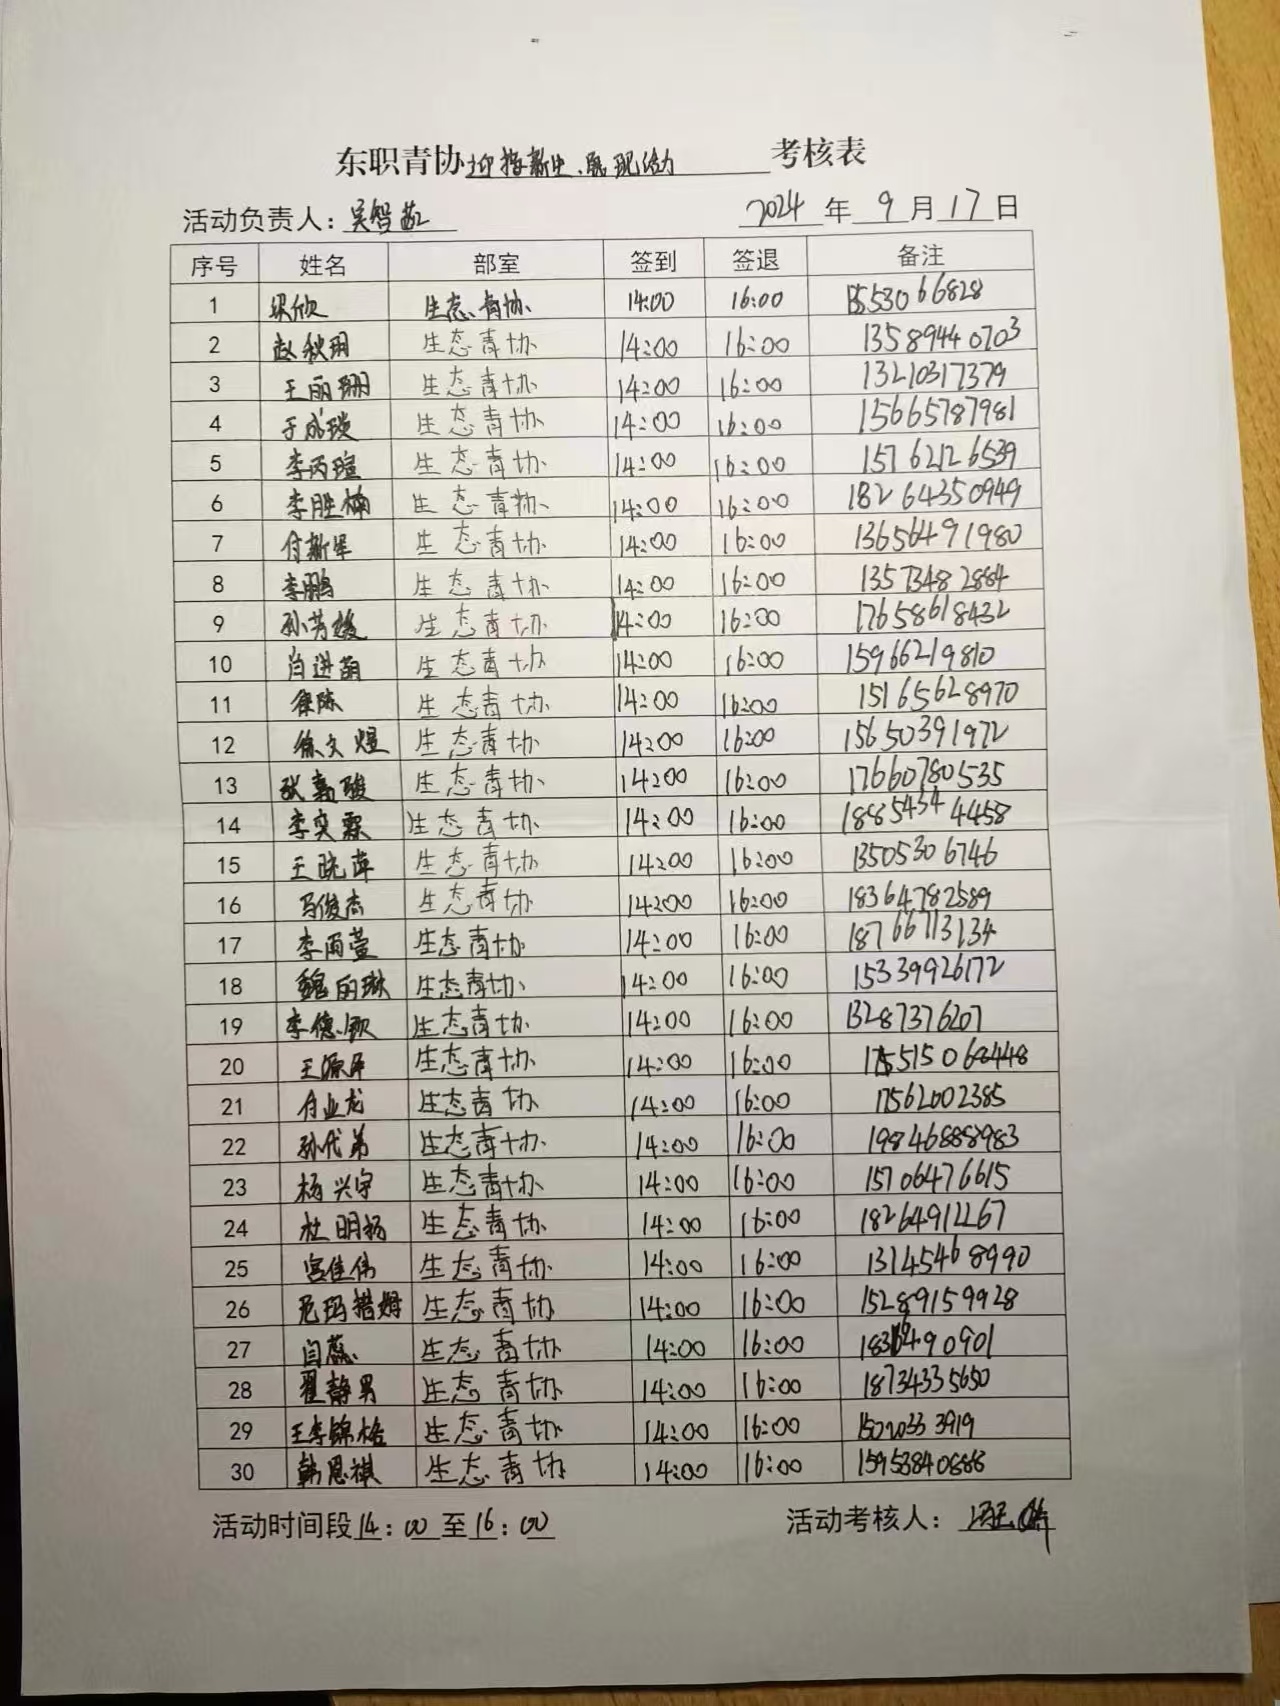 东职青协迎接新生、展现活力考核表
活动负责人: 吴智 2024年9月17日
序号 姓名 部室 签到 签退 备注
1 梁欣 生态青协 14:00 16:00 1553066828
2 赵秋玥 生态青协 14:00 16:00 13589440703
3 王丽珊 生态青协 14:00 16:00 13210317379
4 于成琰 生态青协 14:00 16:00 15665787981
5 李丙瑄 生态青协 14:00 16:00 15762126539
6 李胜楠 生态青协 14:00 16:00 18264350949
7 付新军 生态青协 14:00 16:00 13656491980
8 李鹏 生态青协 14:00 16:00 13573482884
9 孙芳媛 生态青协 14:00 16:00 17658618432
10 肖进萌 生态青协 14:00 16:00 15966219810
11 徐陈 生态青协 14:00 16:00 15165628970
12 徐文煜 生态青协 14:00 16:00 15650391972
13 张嘉骏 生态青协 14:00 16:00 17660780535
14 李奕霖 生态青协 14:00 16:00 18854344458
15 王晓萍 生态青协 14:00 16:00 13505306746
16 马俊杰 生态青协 14:00 16:00 18364782589
17 李雨萱 生态青协 14:00 16:00 18766713134
18 魏丽琳 生态青协 14:00 16:00 15339926172
19 李德钦 生态青协 14:00 16:00 13287376207
20 王源泽 生态青协 14:00 16:00
21 付业龙 生态青协 14:00 16:00 17562002385
22 孙代弟 生态青协 14:00 16:00 198468888983
23 杨兴宇 生态青协 14:00 16:00 15706476615
24 杜明扬 生态青协 14:00 16:00 18264912267
25 宫佳伟 生态青协 14:00 16:00 13145468990
26 尼玛措姆 生态青协 14:00 16:00 15289159928
27 闫蕊 生态青协 14:00 16:00
28 翟静男 生态青协 14:00 16:00 18734335650
29 王李锦格 生态青协 14:00 16:00 1502033 3919
30 韩恩祺 生态青协 14:00 16:00 15953840888
活动时间段14:00至16:00 活动考核人: